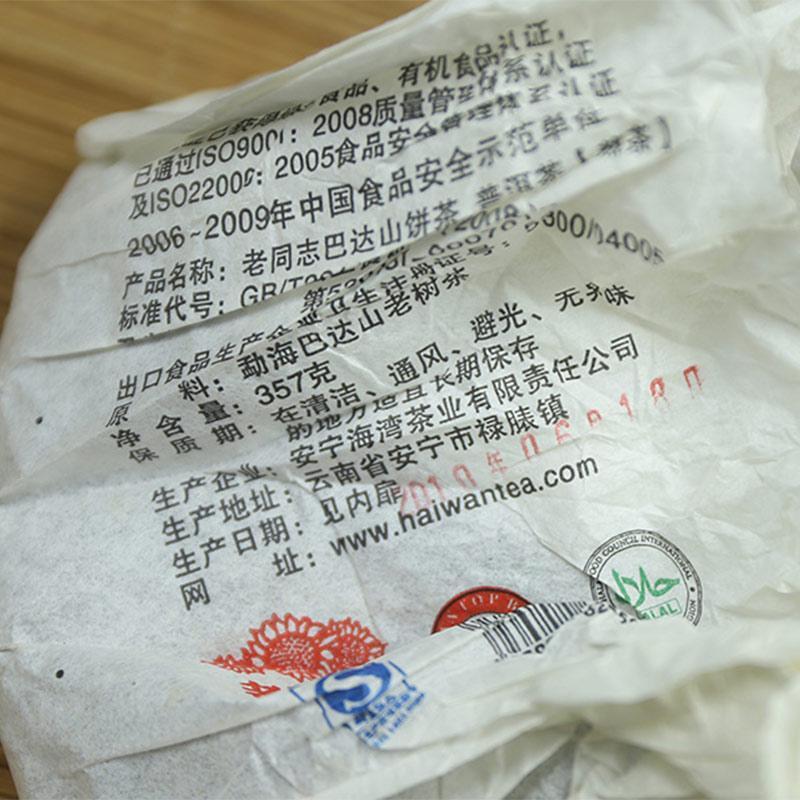 食品、有机食品认证,
已通过ISO9001:2008质量管理体系认证
及ISO22000:2005食品安全管理体系认证
2006~2009年中国食品安全示范单位
产品名称:老同志巴达山饼茶 普洱茶【
标准代号:GB/T22
出口食品生产企业卫生注册证号:
原 料:勐海巴达山老树茶
净 含 量:357克
保 质 期:在清洁、通风、避光、无异味
的地方适宜长期保存
生产企业:安宁海湾茶业有限责任公司
生产地址:云南省安宁市禄脿镇
生产日期:见内扉
2010年06
180
网 址:www.haiwantea.com
FOOD COUNCIL INTERNATIONAL
حلال
HALAL